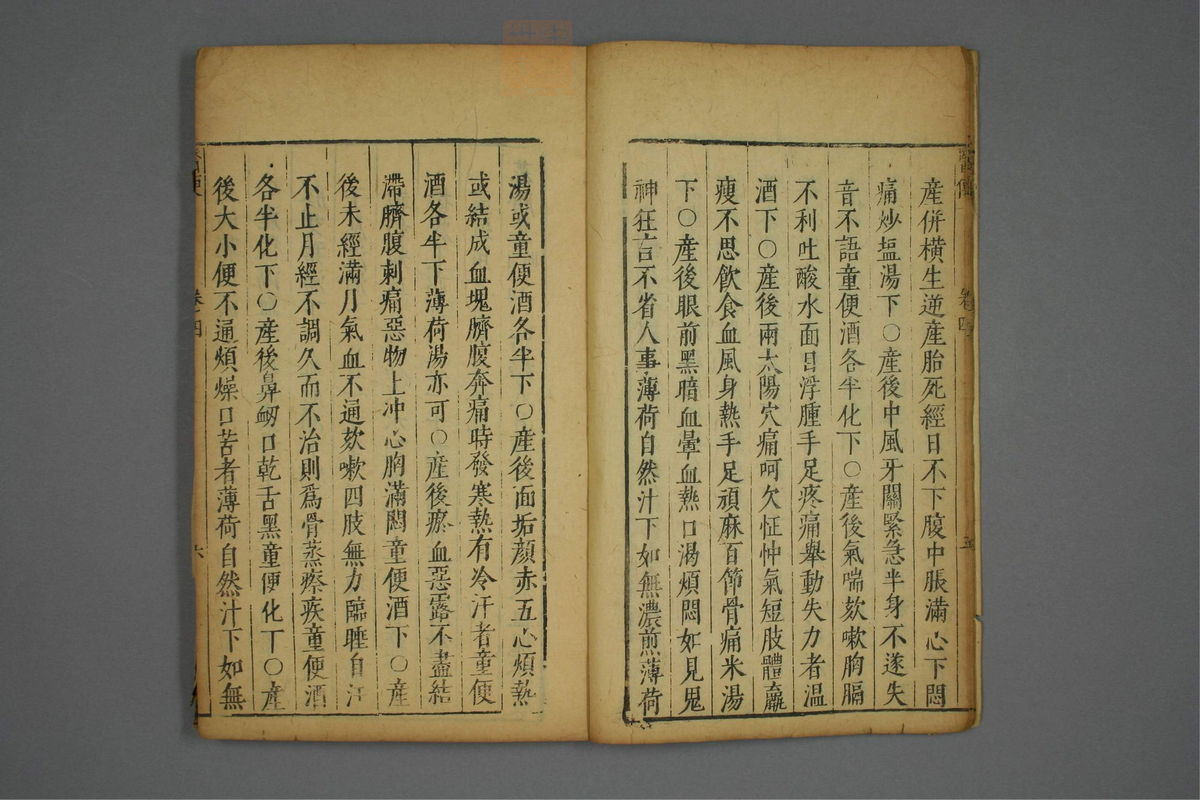 產併橫生逆產胎死經日不下腹中脹滿心下悶
痛炒塩湯下〇產後中風牙關緊急半身不遂失
音不語童便酒各半化下〇產後氣喘欬嗽胸膈
不利吐酸水面目浮腫手足疼痛舉動失力者溫
酒下〇產後兩太陽穴痛呵欠怔忡氣短肢體羸
瘦不思飲食血風身熱手足頑麻百節骨痛米湯
下〇產後眼前黑暗血暈血熱口渴煩悶如見鬼
神狂言不省人事薄荷自然汁下如無濃煎薄荷
湯或童便酒各半下〇產後面垢顏赤五心煩熱
或結成血塊臍腹奔痛時發寒熱有冷汗者童便
酒各半下薄荷湯亦可〇產後瘀血惡露不盡結
滯臍腹刺痛惡物上冲心胸滿悶童便酒下〇產
後未經滿月氣血不通欬嗽四肢無力臨睡自汗
不止月經不調久而不治則爲骨蒸瘵疾童便酒
各半化下〇產後鼻衂口乾舌黑童便化下〇產
後大小便不通煩燥口苦者薄荷自然汁下如無
卷四
五
卷四
六